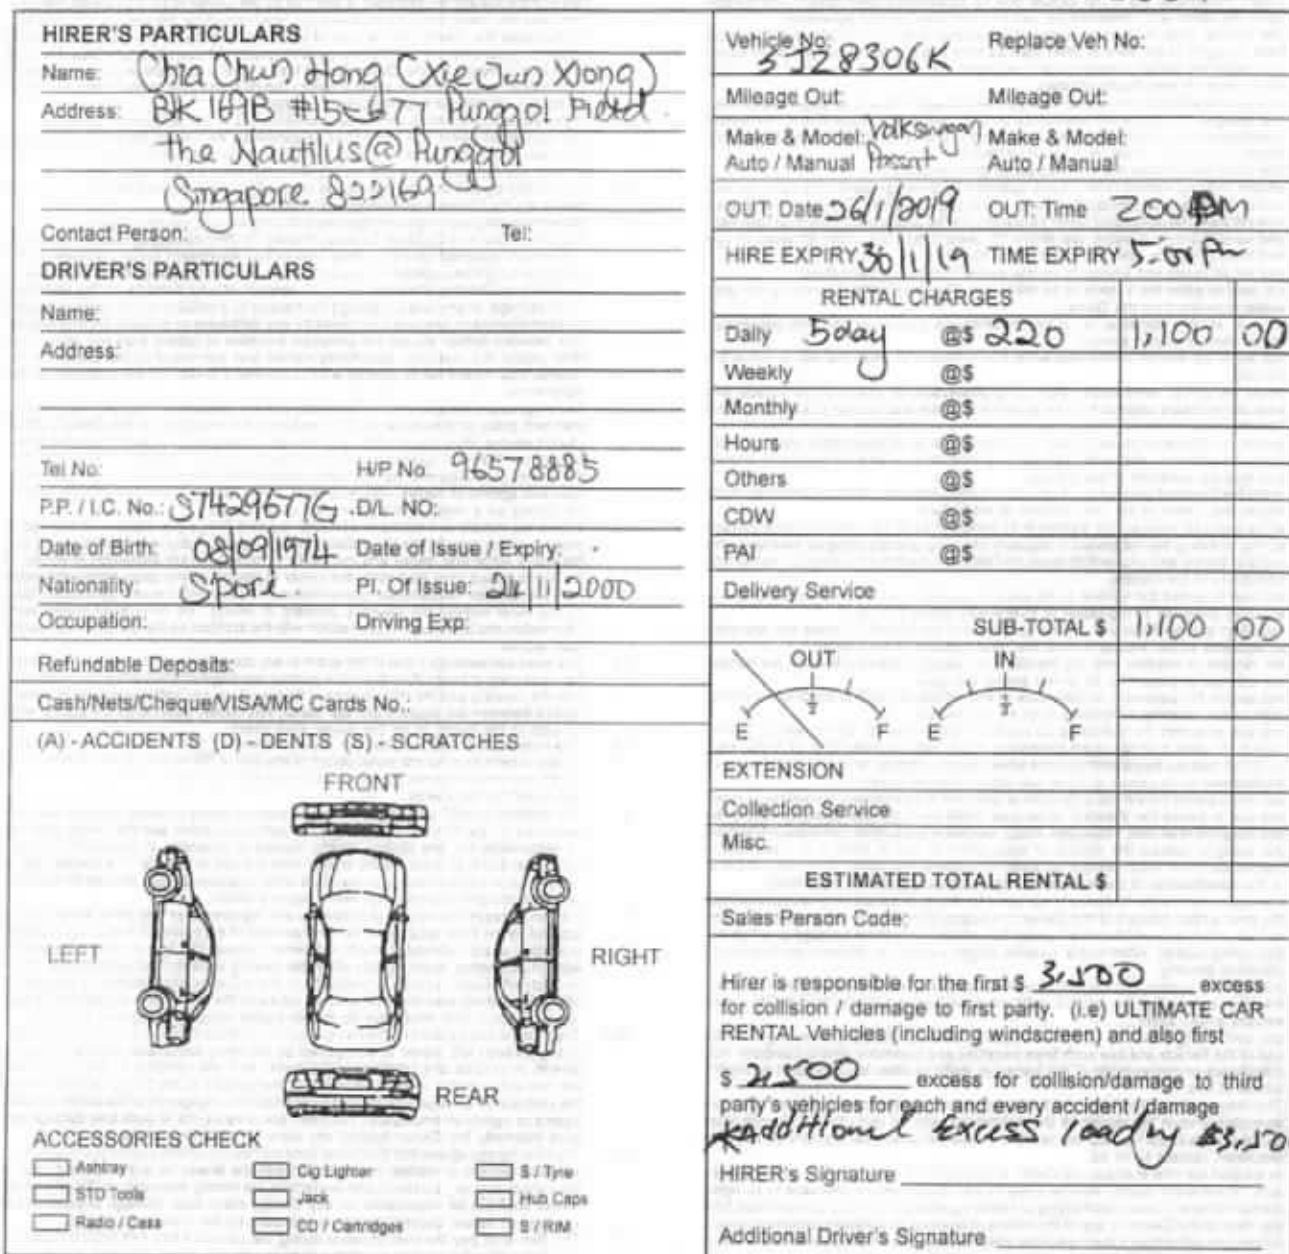 HIRER'S PARTICULARS
Name: Chia Chun Hong (Xie Jun Xiong)
Address: BlK 169B #15-677 Punggol Field.
the Nautilus @ Punggol
Singapore 822169
Contact Person: Tel:
DRIVER'S PARTICULARS
Name:
Address:
Tel No: H/P No. 96578885
P.P. / I.C. No.: S7429677G D/L. NO:
Date of Birth: 08/09/1974 Date of Issue / Expiry:
Nationality: S'pore. Pl. Of Issue: 24/11/2000
Occupation: Driving Exp:
Refundable Deposits:
Cash/Nets/Cheque/VISA/MC Cards No.:
(A) - ACCIDENTS (D) - DENTS (S) - SCRATCHES
FRONT
LEFT
RIGHT
REAR
ACCESSORIES CHECK
Ashtray Cig Lighter S / Tyre
STD Tools Jack Hub Caps
Radio / Cass CD / Cartridges S / RIM
Vehicle No: SJZ8306K Replace Veh No:
Mileage Out: Mileage Out:
Make & Model: Volkswagen Make & Model:
Auto / Manual Passat Auto / Manual
OUT: Date 26/1/2019 OUT: Time 200PM
HIRE EXPIRY 30/1/19 TIME EXPIRY 5.00 Pm
RENTAL CHARGES
Daily 5day @$ 220 1,100 00
Weekly @$
Monthly @$
Hours @$
Others @$
CDW @$
PAI @$
Delivery Service
SUB-TOTAL $ 1,100 00
OUT IN
E 1/2 F E 1/2 F
EXTENSION
Collection Service
Misc.
ESTIMATED TOTAL RENTAL $
Sales Person Code:
Hirer is responsible for the first $ 3,500 excess
for collision / damage to first party. (i.e) ULTIMATE CAR
RENTAL Vehicles (including windscreen) and also first
$ 2,500 excess for collision/damage to third
party's vehicles for each and every accident / damage
Additional Excess loading $3,50
HIRER's Signature
Additional Driver's Signature